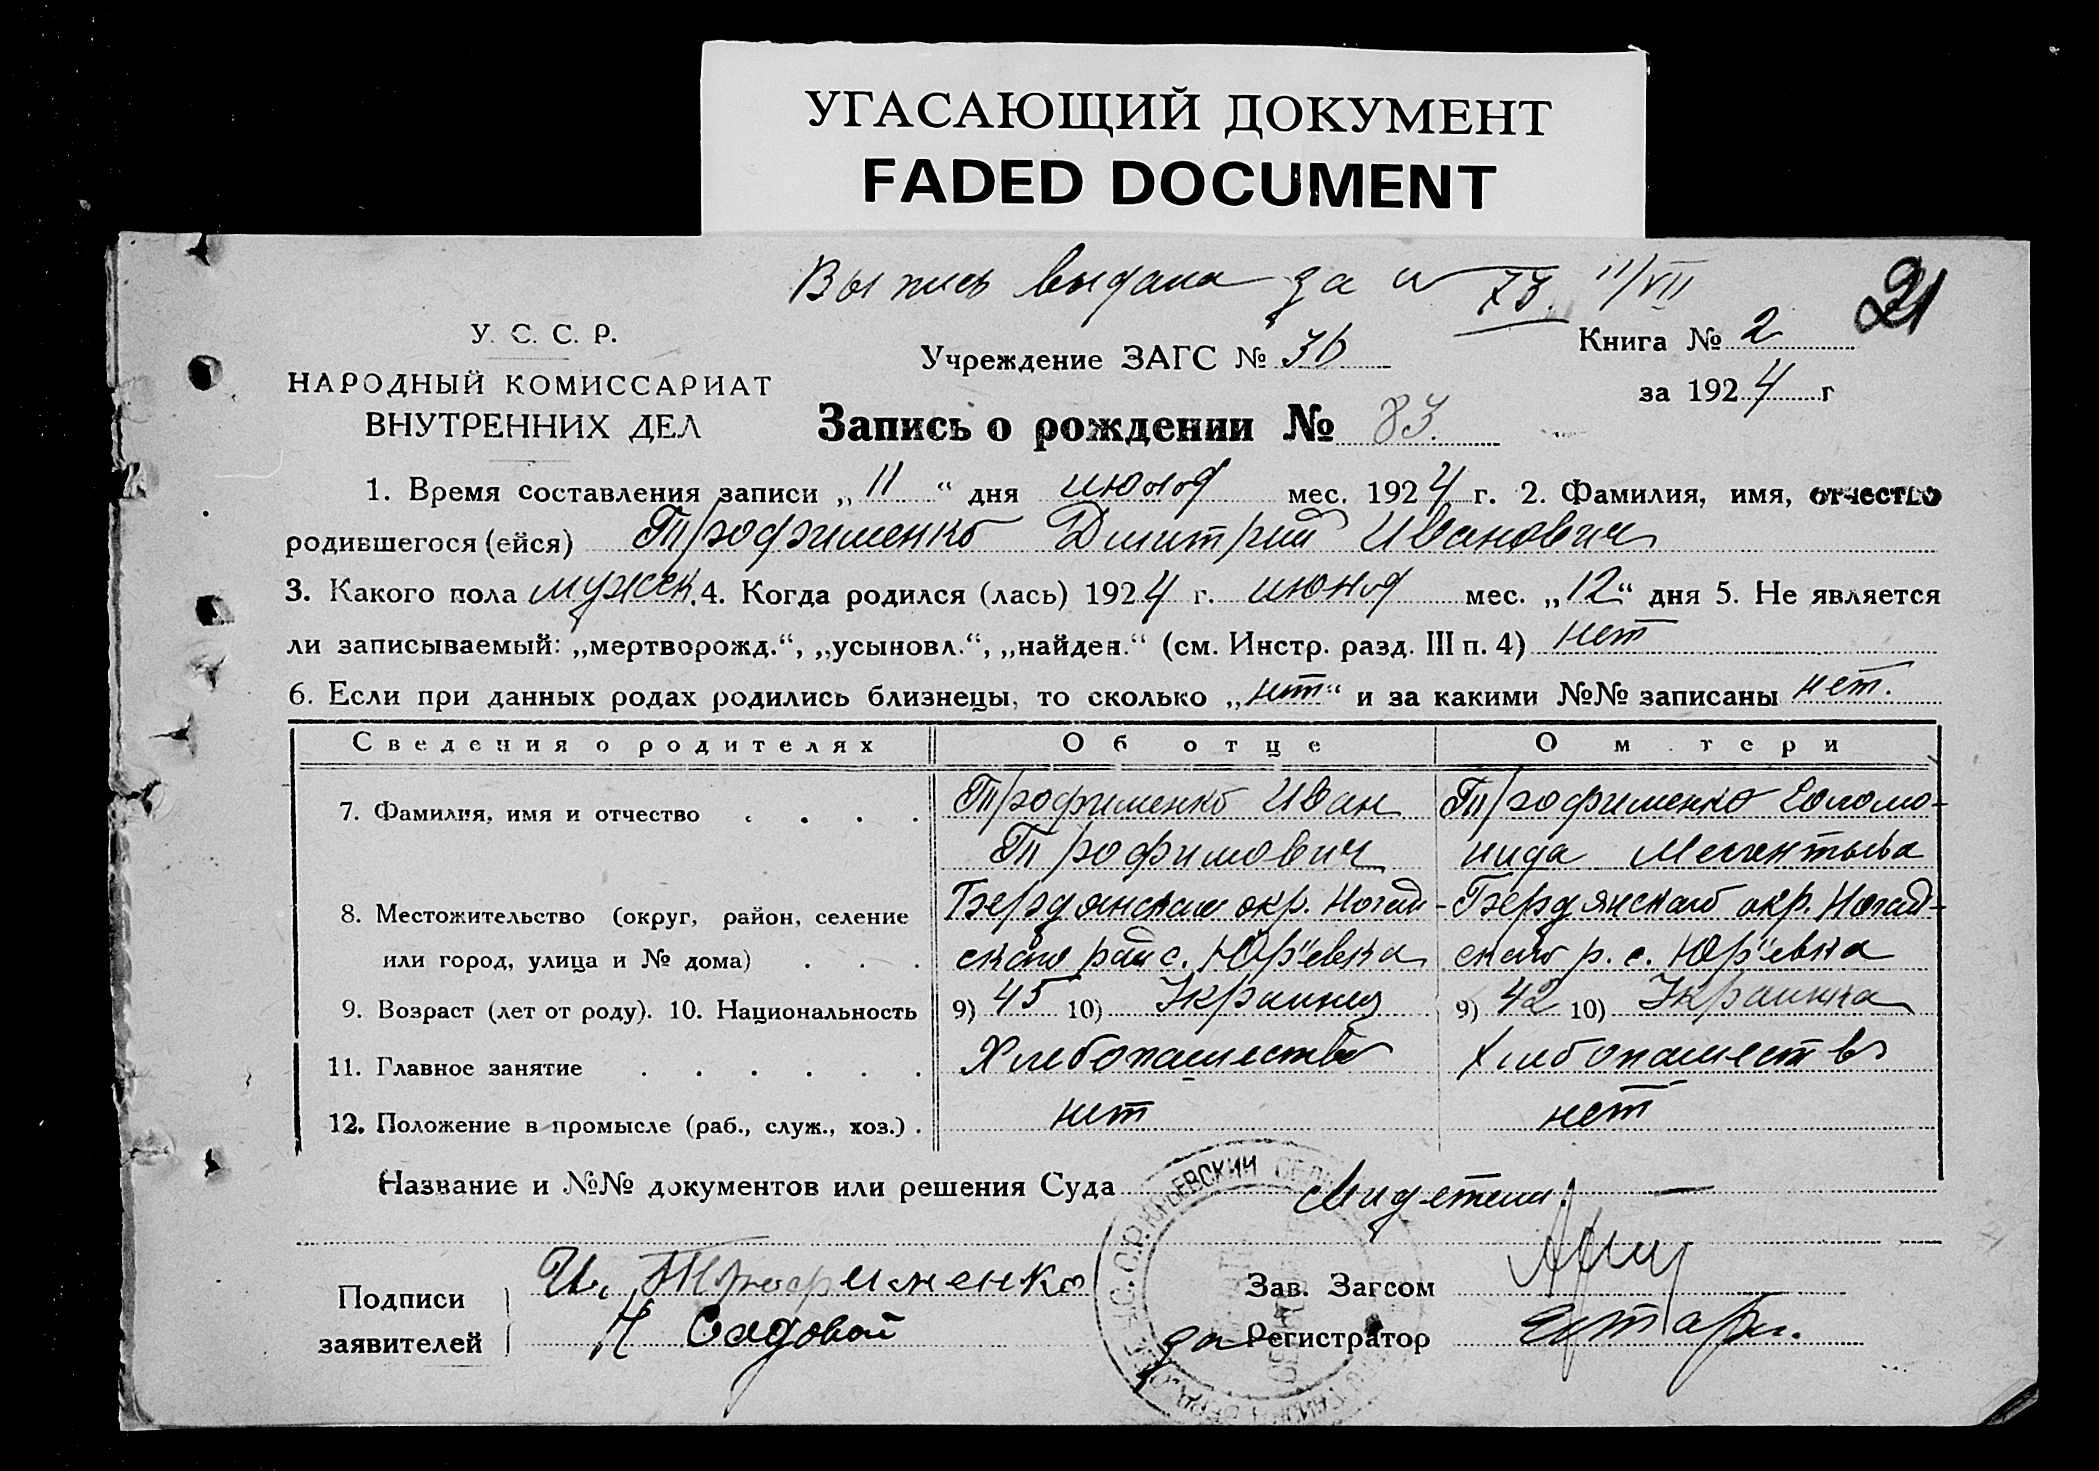 УГАСАЮЩИЙ ДОКУМЕНТ
FADED DOCUMENT
Выпись выдана за № 73. 11/VII
21
У. С. С. Р.
НАРОДНЫЙ КОМИССАРИАТ
ВНУТРЕННИХ ДЕЛ
Учреждение ЗАГС № 36
Книга № 2
за 1924 г
Запись о рождении № 83.
1. Время составления записи „11“ дня июля мес. 1924 г. 2. Фамилия, имя, отчество
родившегося (ейся) Трофименко Дмитрий Иванович
3. Какого пола мужск. 4. Когда родился (лась) 1924 г. июня мес. „12“ дня 5. Не является
ли записываемый: „мертворожд.“, „усыновл.“, „найден.“ (см. Инстр. разд. III п. 4) нет
6. Если при данных родах родились близнецы, то сколько „нет“ и за какими №№ записаны нет.
Сведения о родителях Об отце О м тери
7. Фамилия, имя и отчество . . . . Трофименко Иван Трофименко Соломо-
Трофимович нида
8. Местожительство (округ, район, селение Бердянского окр. Ногай- Бердянского окр. Ногай-
или город, улица и № дома) . . . ского рай с. Юр"евка ского р. с. Юр"евка
9. Возраст (лет от роду). 10. Национальность 9) 45 10) Украинец 9) 42 10) Украинка
11. Главное занятие . . . . . . Хлебопашество Хлебопашество
12. Положение в промысле (раб., служ., хоз.) . нет нет
Название и №№ документов или решения Суда свидетели. —
Подписи
заявителей
И. Трофименко
Н Садовой
Зав. Загсом
за Регистратор